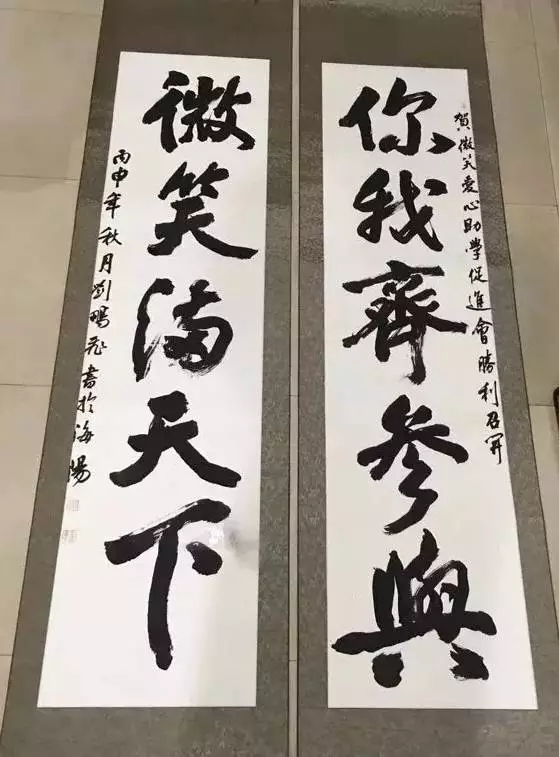 賀微笑愛心助學促進會勝利召開
你我齊參與
微笑滿天下
丙申年秋月劉鴨飛書於海陽